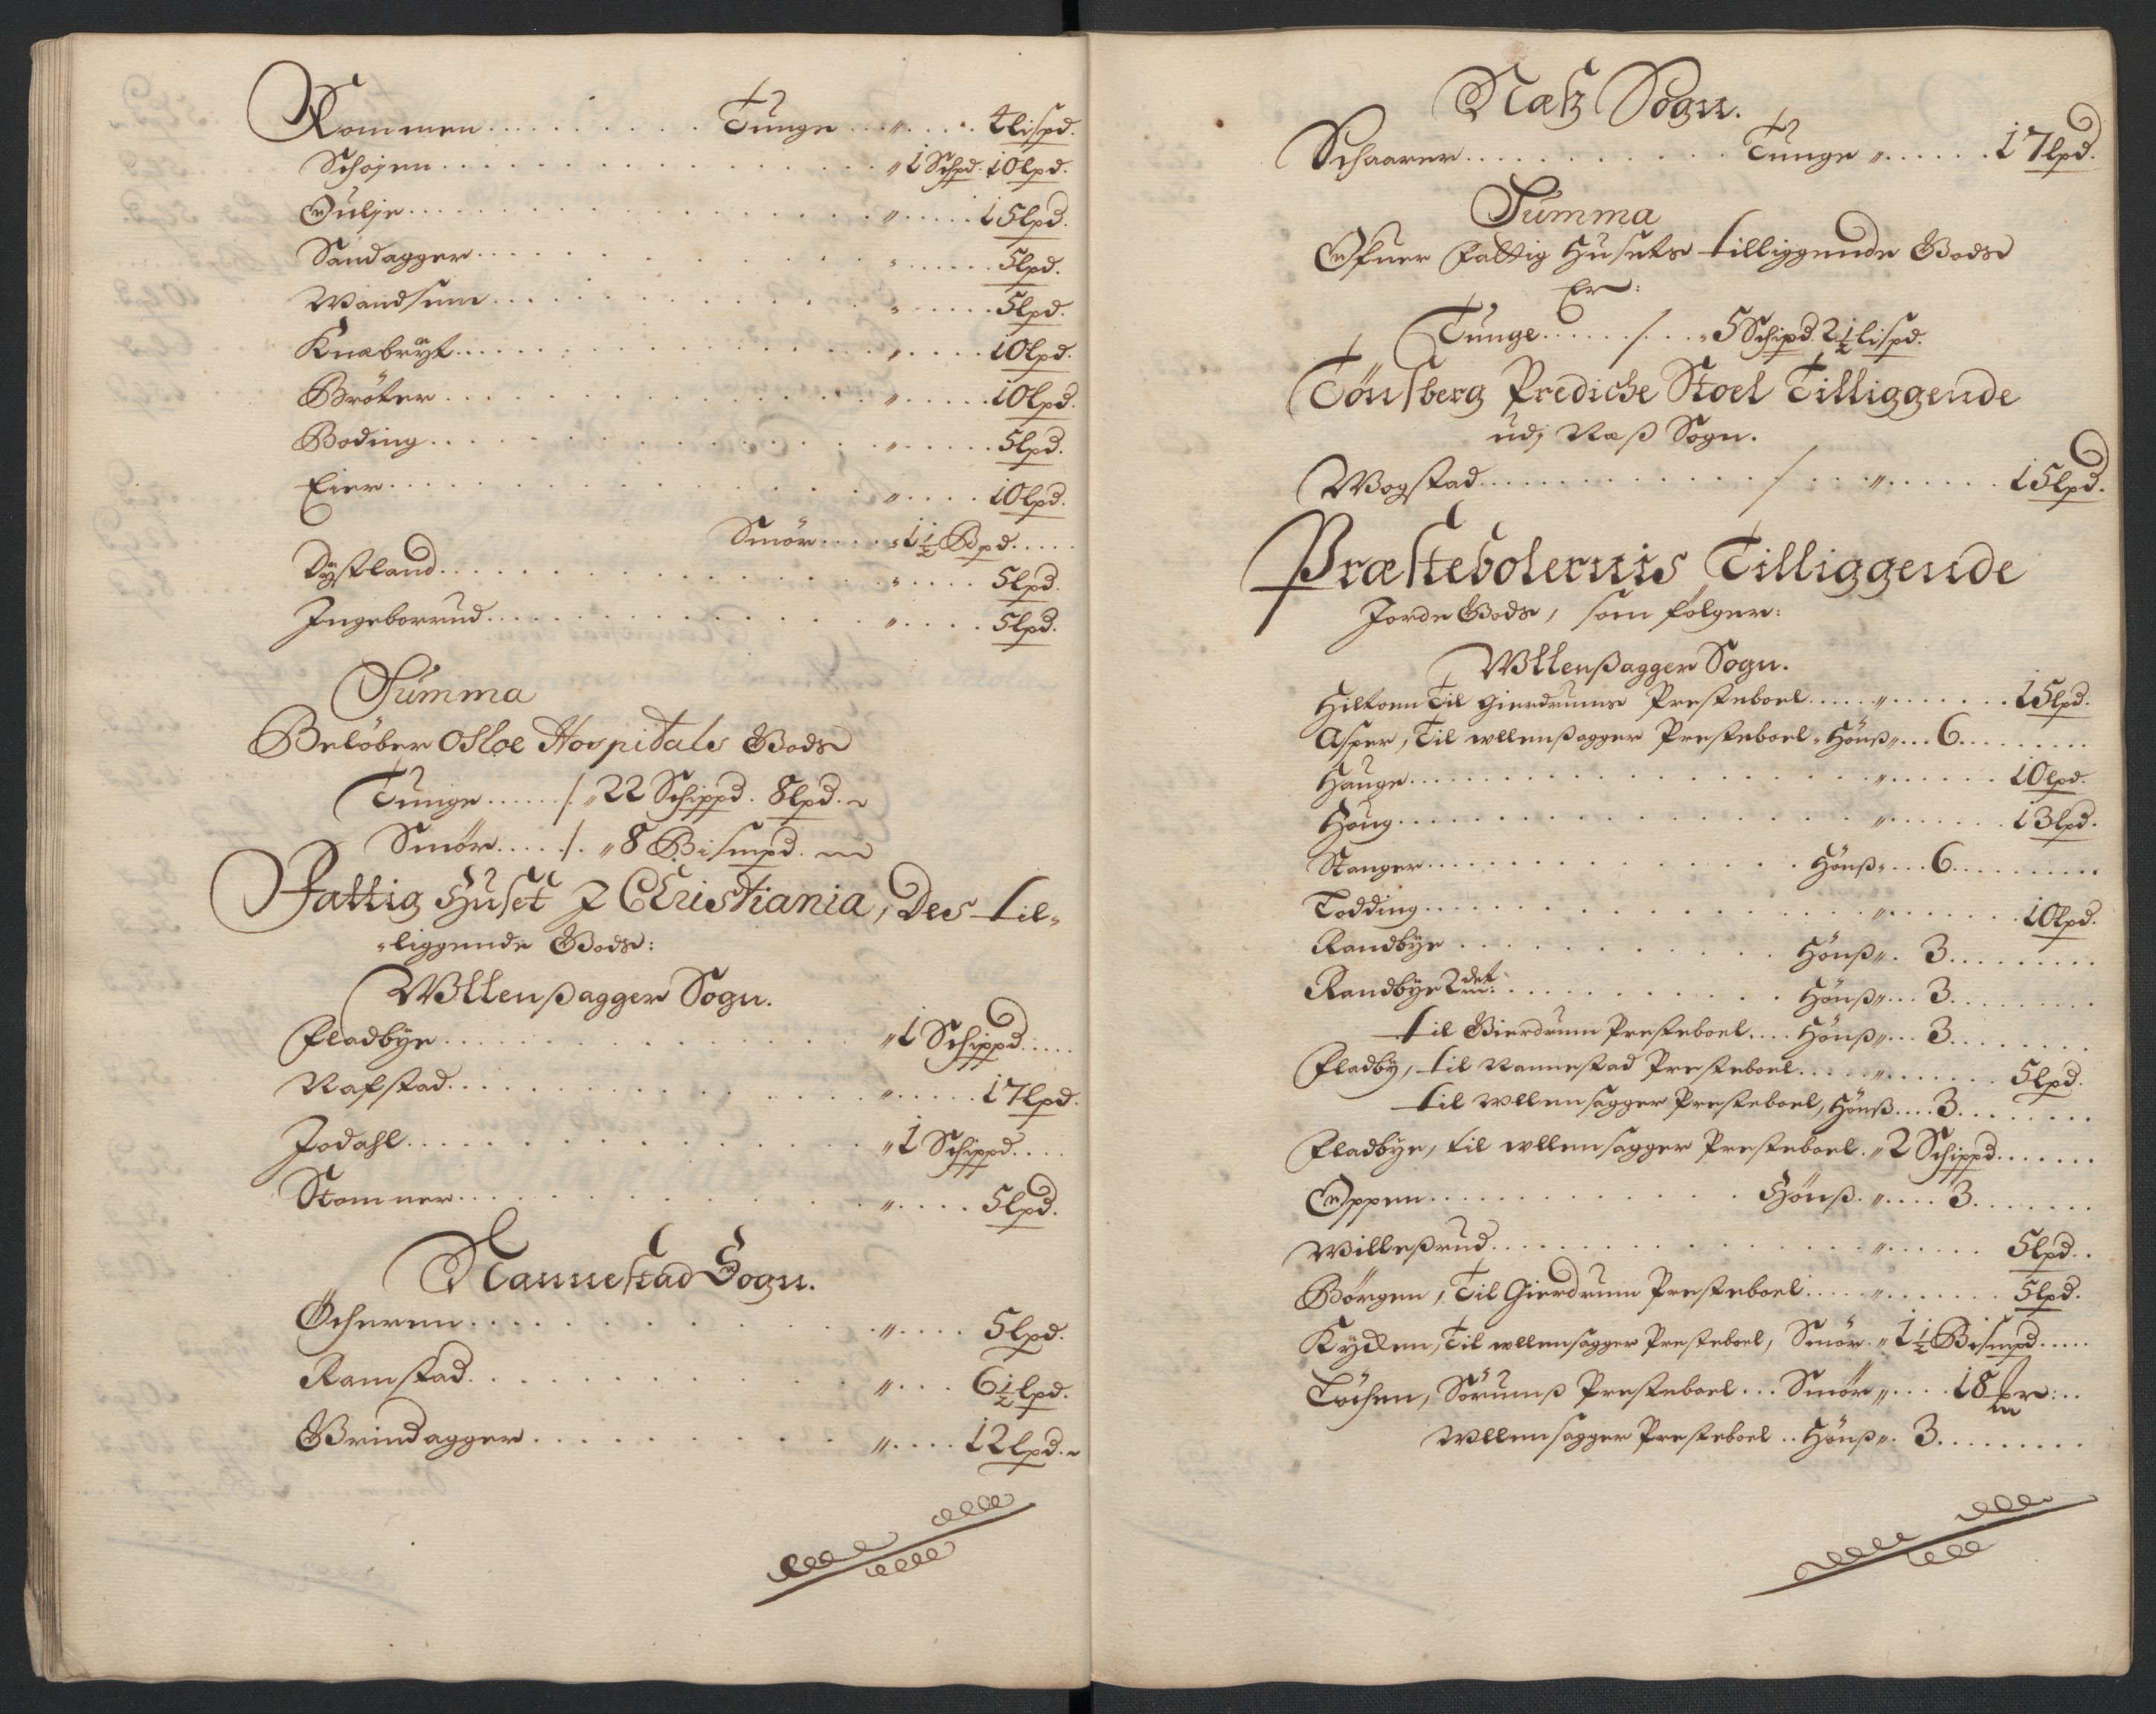 Rommen . . . . . . . . . Tunge . . . " . . . . 4 lispd.
Schojen . . . . . . . . . " 1 Schpd. 10 lpd.
Oulje . . . . . . . . . " . . . . . 15 lpd.
Sandagger . . . . . . . . . " . . . . . 5 lpd.
Wandsum . . . . . . . . . " . . . . . 5 lpd.
Knabryt . . . . . . . . . " . . . . 10 lpd.
Bröter . . . . . . . . . " . . . . . 10 lpd.
Boding . . . . . . . . . " . . . . . 5 lpd.
Eier . . . . . . . . . " . . . . 10 lpd.
Smör . . . . " 1½ Bpd. . . . .
Dystland . . . . . . . . . " . . . . 5 lpd.
Ingeborrud . . . . . . . . . " . . . . 5 lpd.
Summa
Belöber Osloe Hospitals Gods
Tunge . . . . . /. " 22 Schippd. 8 lpd.
Smör . . . . /. " 8 Bismpd.
Fattig Huset I Christiania, Des til-
liggende Gods:
Wllenßagger Sogn.
Fladbye . . . . . . . . . " 1 Schippd. . . . .
Rafstad . . . . . . . . . " . . . . . 17 lpd.
Jodahl . . . . . . . . . " 1 Schippd. . . .
Stomner . . . . . . . . . " . . . . 5 lpd.
Nannestad Sogn.
Ocheren . . . . . . . . . " . . . . 5 lpd.
Ramstad . . . . . . . . . " . . . 6½ lpd.
Grindagger . . . . . . . . . " . . . . 12 lpd.
Næß Sogn.
Schaarer . . . . . . . . . Tunge " . . . . . . 17 lpd.
Summa
Ofuer Fattig Husets tilliggende Gods
Er:
Tunge . . . . . . /. . . " 5 Schipd. 2½ lispd.
Tönsberg Prediche Stoel Tilliggende
udj Næß Sogn.
Wogstad . . . . . . . . . / . . . " . . . . . . 15 lpd.
Præstebolernis Tilliggende
Jorde Gods, som følger:
Wllenßagger Sogn.
Hilton Til Gierdrums Presteboel . . . . . " . . . . . . . 15 lpd.
Asper, Til wllenßagger Presteboel " Hönß " . . . 6 . . . . . . . . .
Hauge . . . . . . . . . " . . . . . . 10 lpd.
Houg . . . . . . . . . " . . . . . . 13 lpd.
Stanger . . . . . . . . . Hönß " . . . 6 . . . . . . . . . .
Todding . . . . . . . . . " . . . . . . 10 lpd.
Randbye . . . . . . . . . Hönß " . 3 . . . . . . . . .
Randbye 2det: . . . . . . . . . Hönß " . . . 3 . . . . . . . . .
til Gierdrum Presteboel . . . . Hönß " . . . 3 . . . . . . . .
Fladby, til Nannestad Presteboel . . . . . " . . . . . . . 5 lpd.
til wllensagger Presteboel, Hönß . . . . 3 . . . . . . . .
Fladbye, til wllensagger Presteboel . " 2 Schippd. . . . . . .
Oppen . . . . . . . . . Hönß . " . . . . 3 . . . . . . .
Willeßrud . . . . . . . . . " . . . . . . 5 lpd. .
Börgen, Til Gierdrum Presteboel . . . . " . . . . . . . 5 lpd.
Kyllen, Til wllensagger Presteboel, Smör . " 1½ Bismpd. . . . .
Löchen, Sörumß Presteboel . . . Smör " . . . . 18 mr: . .
Wllensagger Presteboel . . Hönß " . 3 . . . . . . . . .